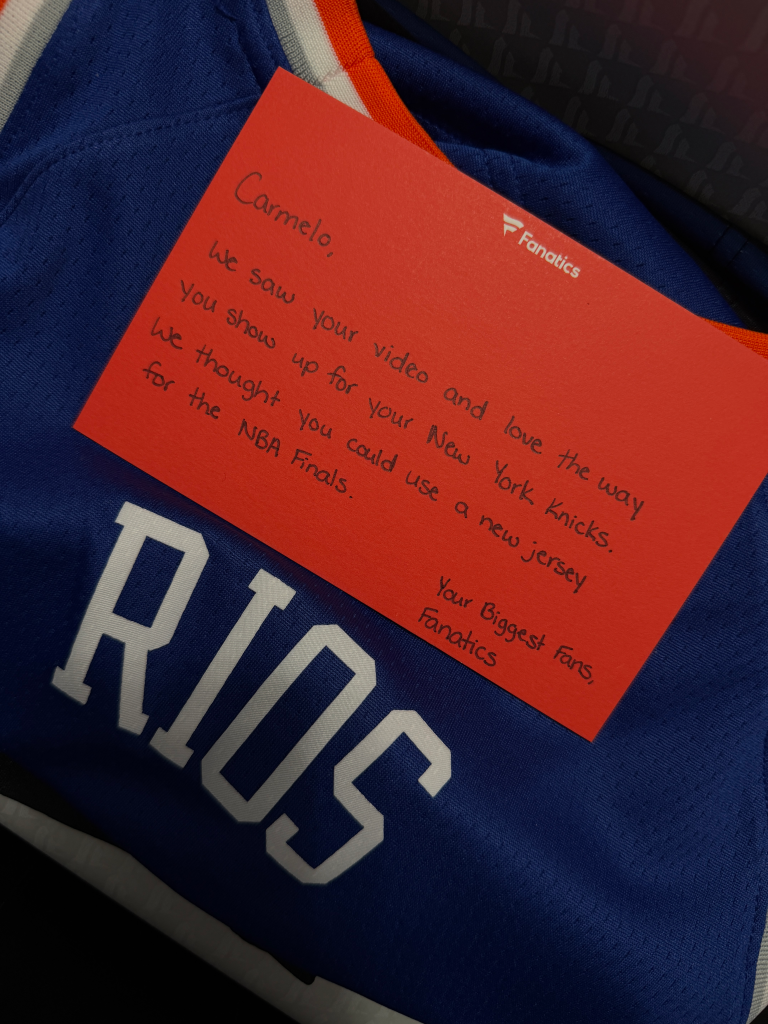 Fanatics
Carmelo,
We saw your video and love the way
you show up for your New York Knicks.
We thought you could use a new jersey
for the NBA Finals.
Your Biggest Fans,
Fanatics
RIOS